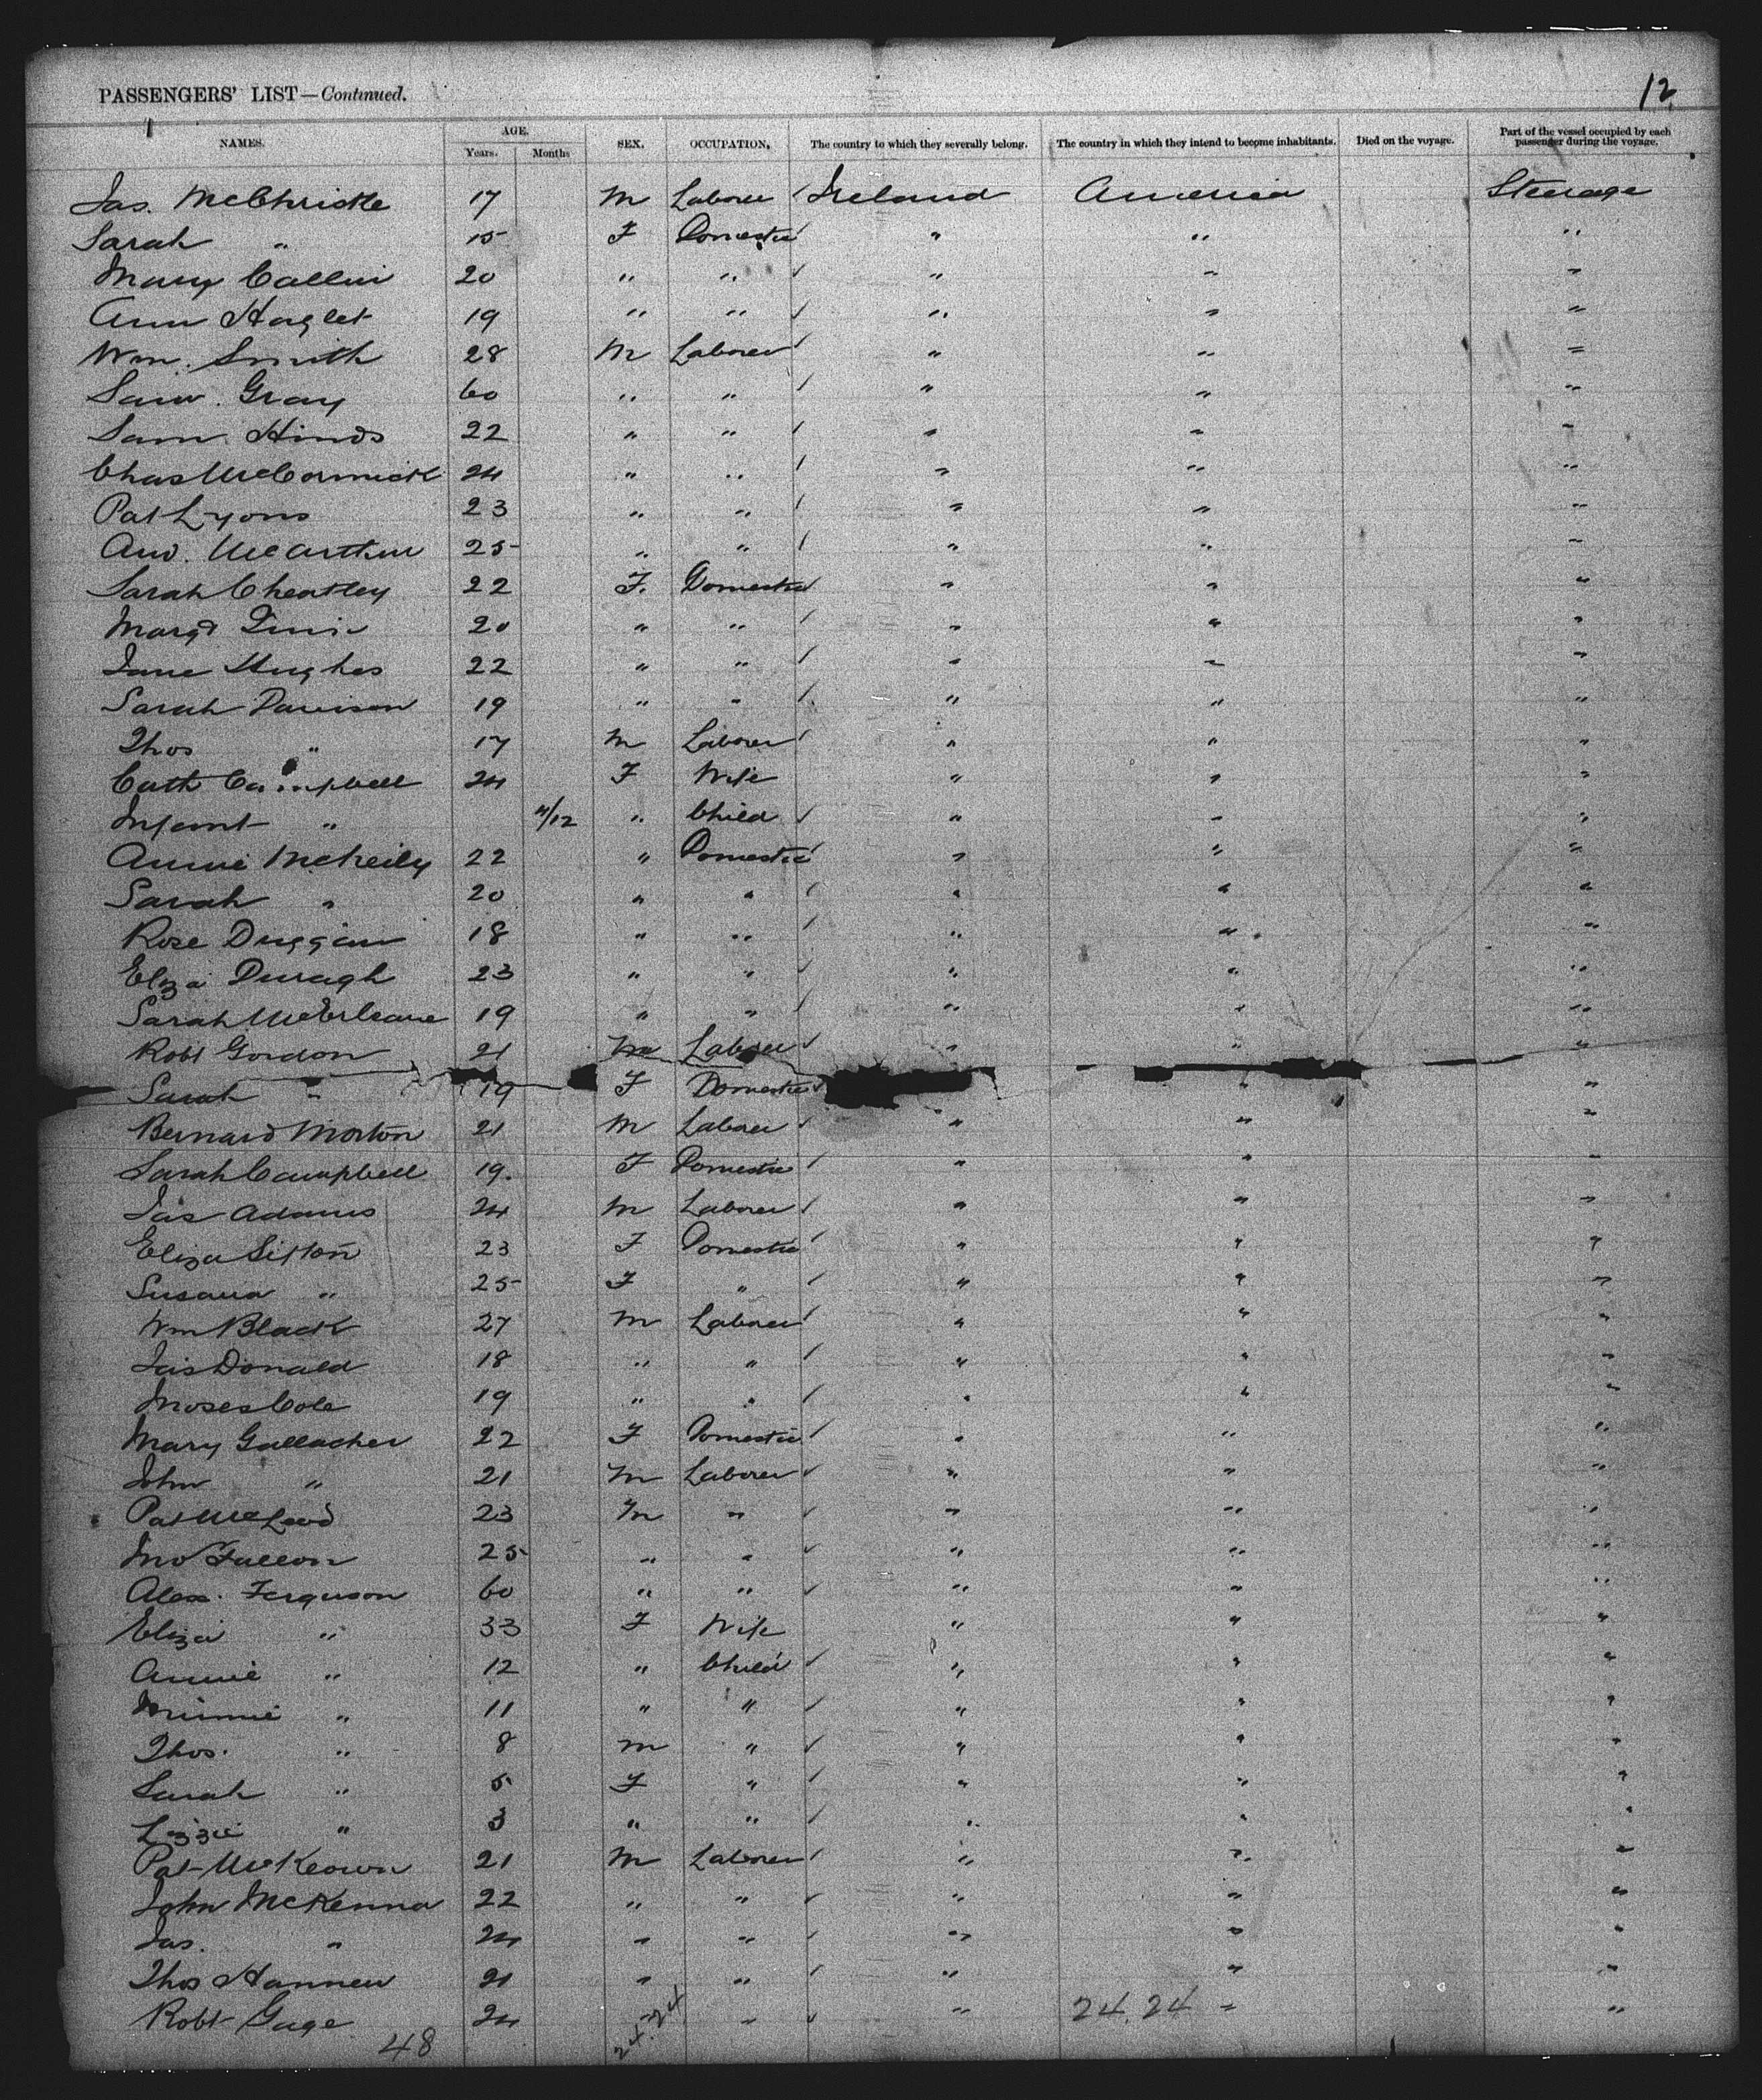 12
PASSENGERS' LIST—Continued.
NAMES. AGE. Years. Months SEX. OCCUPATION, The country to which they severally belong. The country in which they intend to become inhabitants. Died on the voyage. Part of the vessel occupied by each passenger during the voyage.
Jas. McChristle 17 M Laborer Ireland America Steerage
Sarah " 15 F Domestic " " "
Mary 20 " " " " "
Ann Haglet 19 " " " " "
Wm. Smith 28 M Laborer " " "
Sam. Gray 60 " " " " "
Sam. Hinds 22 " " " " "
Chas McCormick 24 " " " " "
Pat Lyons 23 " " " " "
And. McArthur 25 " " " " "
Sarah Cheatley 22 F. Domestic " " "
Margt 20 " " " " "
Jane Hughes 22 " " " " "
Sarah Davison 19 " " " " "
Thos " 17 M Laborer " " "
Cath Campbell 24 F Wife " " "
Infant " 11/12 " Child " " "
Annie McNeily 22 " Domestic " " "
Sarah " 20 " " " " "
Rose Duggan 18 " " " " "
Eliza Duragh 23 " " " " "
Sarah McErleane 19 " " " " "
Robt Gordon 21 M Laborer " " "
Sarah " 19 F Domestic " "
Bernard Morton 21 M Laborer " " "
Sarah Campbell 19. F Domestic " " "
Jas Adams 24 M Laborer " " "
Eliza Sifton 23 F Domestic " " "
Susana " 25 F " " " "
Wm Black 27 M Laborer " " "
Jas Donald 18 " " " " "
Moses Cole 19 " " " " "
Mary Gallacher 22 F Domestic " " "
John " 21 M Laborer " " "
Pat McLeod 23 M " " " "
Jno Fallon 25 " " " " "
Alex. Ferguson 60 " " " " "
Eliza " 33 F Wife " " "
Annie " 12 " Child " " "
Minnie " 11 " " " " "
Thos. " 8 M " " " "
Sarah " 5 F " " " "
Lizzie " 3 " " " " "
Pat McKeown 21 M Laborer " " "
John McKenna 22 " " " " "
Jas. " 24 " " " " "
Thos Hannen 21 " " " " "
Robt Gage 24 " " " 24.24 " "
48 24.24